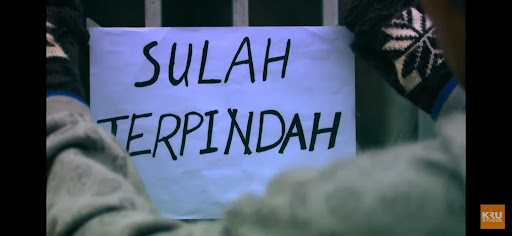 SULAH
TERPINDAH
KRU
STUDIOS